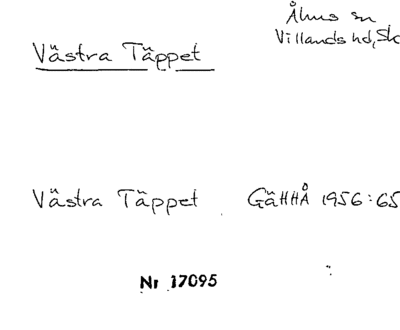 Åhus sn
Villands hd, Sk
Västra Täppet
Västra Täppet GäHHÅ 1956:65
Nr 17095